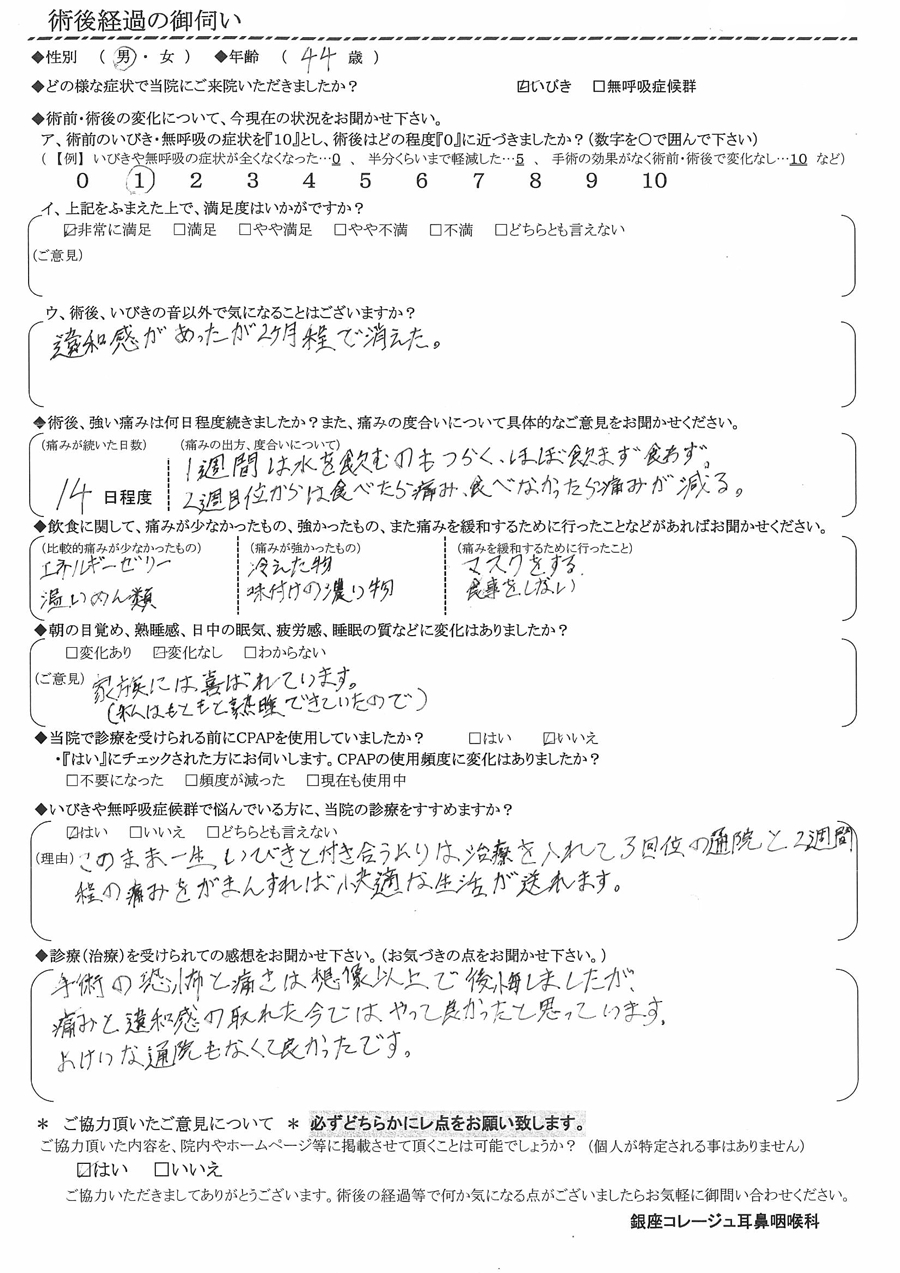 術後経過の御伺い
◆性別 （ 男 ・ 女 ） ◆年齢 （ 44 歳 ）
◆どの様な症状で当院にご来院いただきましたか？ ☑いびき □無呼吸症候群
◆術前・術後の変化について、今現在の状況をお聞かせ下さい。
ア、術前のいびき・無呼吸の症状を『10』とし、術後はどの程度『0』に近づきましたか？（数字を〇で囲んで下さい）
（ 【例】 いびきや無呼吸の症状が全くなくなった…0 、 半分くらいまで軽減した…5 、 手術の効果がなく術前・術後で変化なし…10 など）
0 1 2 3 4 5 6 7 8 9 10
イ、上記をふまえた上で、満足度はいかがですか？
☑非常に満足 □満足 □やや満足 □やや不満 □不満 □どちらとも言えない
（ご意見）
ウ、術後、いびきの音以外で気になることはございますか？
違和感があったが2ヶ月程で消えた。
◆術後、強い痛みは何日程度続きましたか？また、痛みの度合いについて具体的なご意見をお聞かせください。
（痛みが続いた日数） （痛みの出方、度合いについて）
1週間は水を飲むのもつらく、ほぼ飲まず食わず。
14 日程度 2週目位からは食べたら痛み、食べなかったら痛みが減る。
◆飲食に関して、痛みが少なかったもの、強かったもの、また痛みを緩和するために行ったことなどがあればお聞かせください。
（比較的痛みが少なかったもの） （痛みが強かったもの） （痛みを緩和するために行ったこと）
エネルギーゼリー 冷えた物 マスクをする
温いめん類 味付けの濃い物 食事をしない
◆朝の目覚め、熟睡感、日中の眠気、疲労感、睡眠の質などに変化はありましたか？
□変化あり ☑変化なし □わからない
（ご意見） 家族には喜ばれています。
（私はもともと熟睡できていたので）
◆当院で診療を受けられる前にCPAPを使用していましたか？ □はい ☑いいえ
・『はい』にチェックされた方にお伺いします。CPAPの使用頻度に変化はありましたか？
□不要になった □頻度が減った □現在も使用中
◆いびきや無呼吸症候群で悩んでいる方に、当院の診療をすすめますか？
☑はい □いいえ □どちらとも言えない
（理由） このまま一生いびきと付き合うよりは治療を入れて3回位の通院と2週間
程の痛みをがまんすれば快適な生活が送れます。
◆診療（治療）を受けられての感想をお聞かせ下さい。（お気づきの点をお聞かせ下さい。）
手術の恐怖と痛さは想像以上で後悔しましたが、
痛みと違和感の取れた今では、やって良かったと思っています。
よけいな通院もなくて良かったです。
＊ ご協力頂いたご意見について ＊ 必ずどちらかにレ点をお願い致します。
ご協力頂いた内容を、院内やホームページ等に掲載させて頂くことは可能でしょうか？ （個人が特定される事はありません）
☑はい □いいえ
ご協力いただきましてありがとうございます。術後の経過等で何か気になる点がございましたらお気軽に御問い合わせください。
銀座コレージュ耳鼻咽喉科